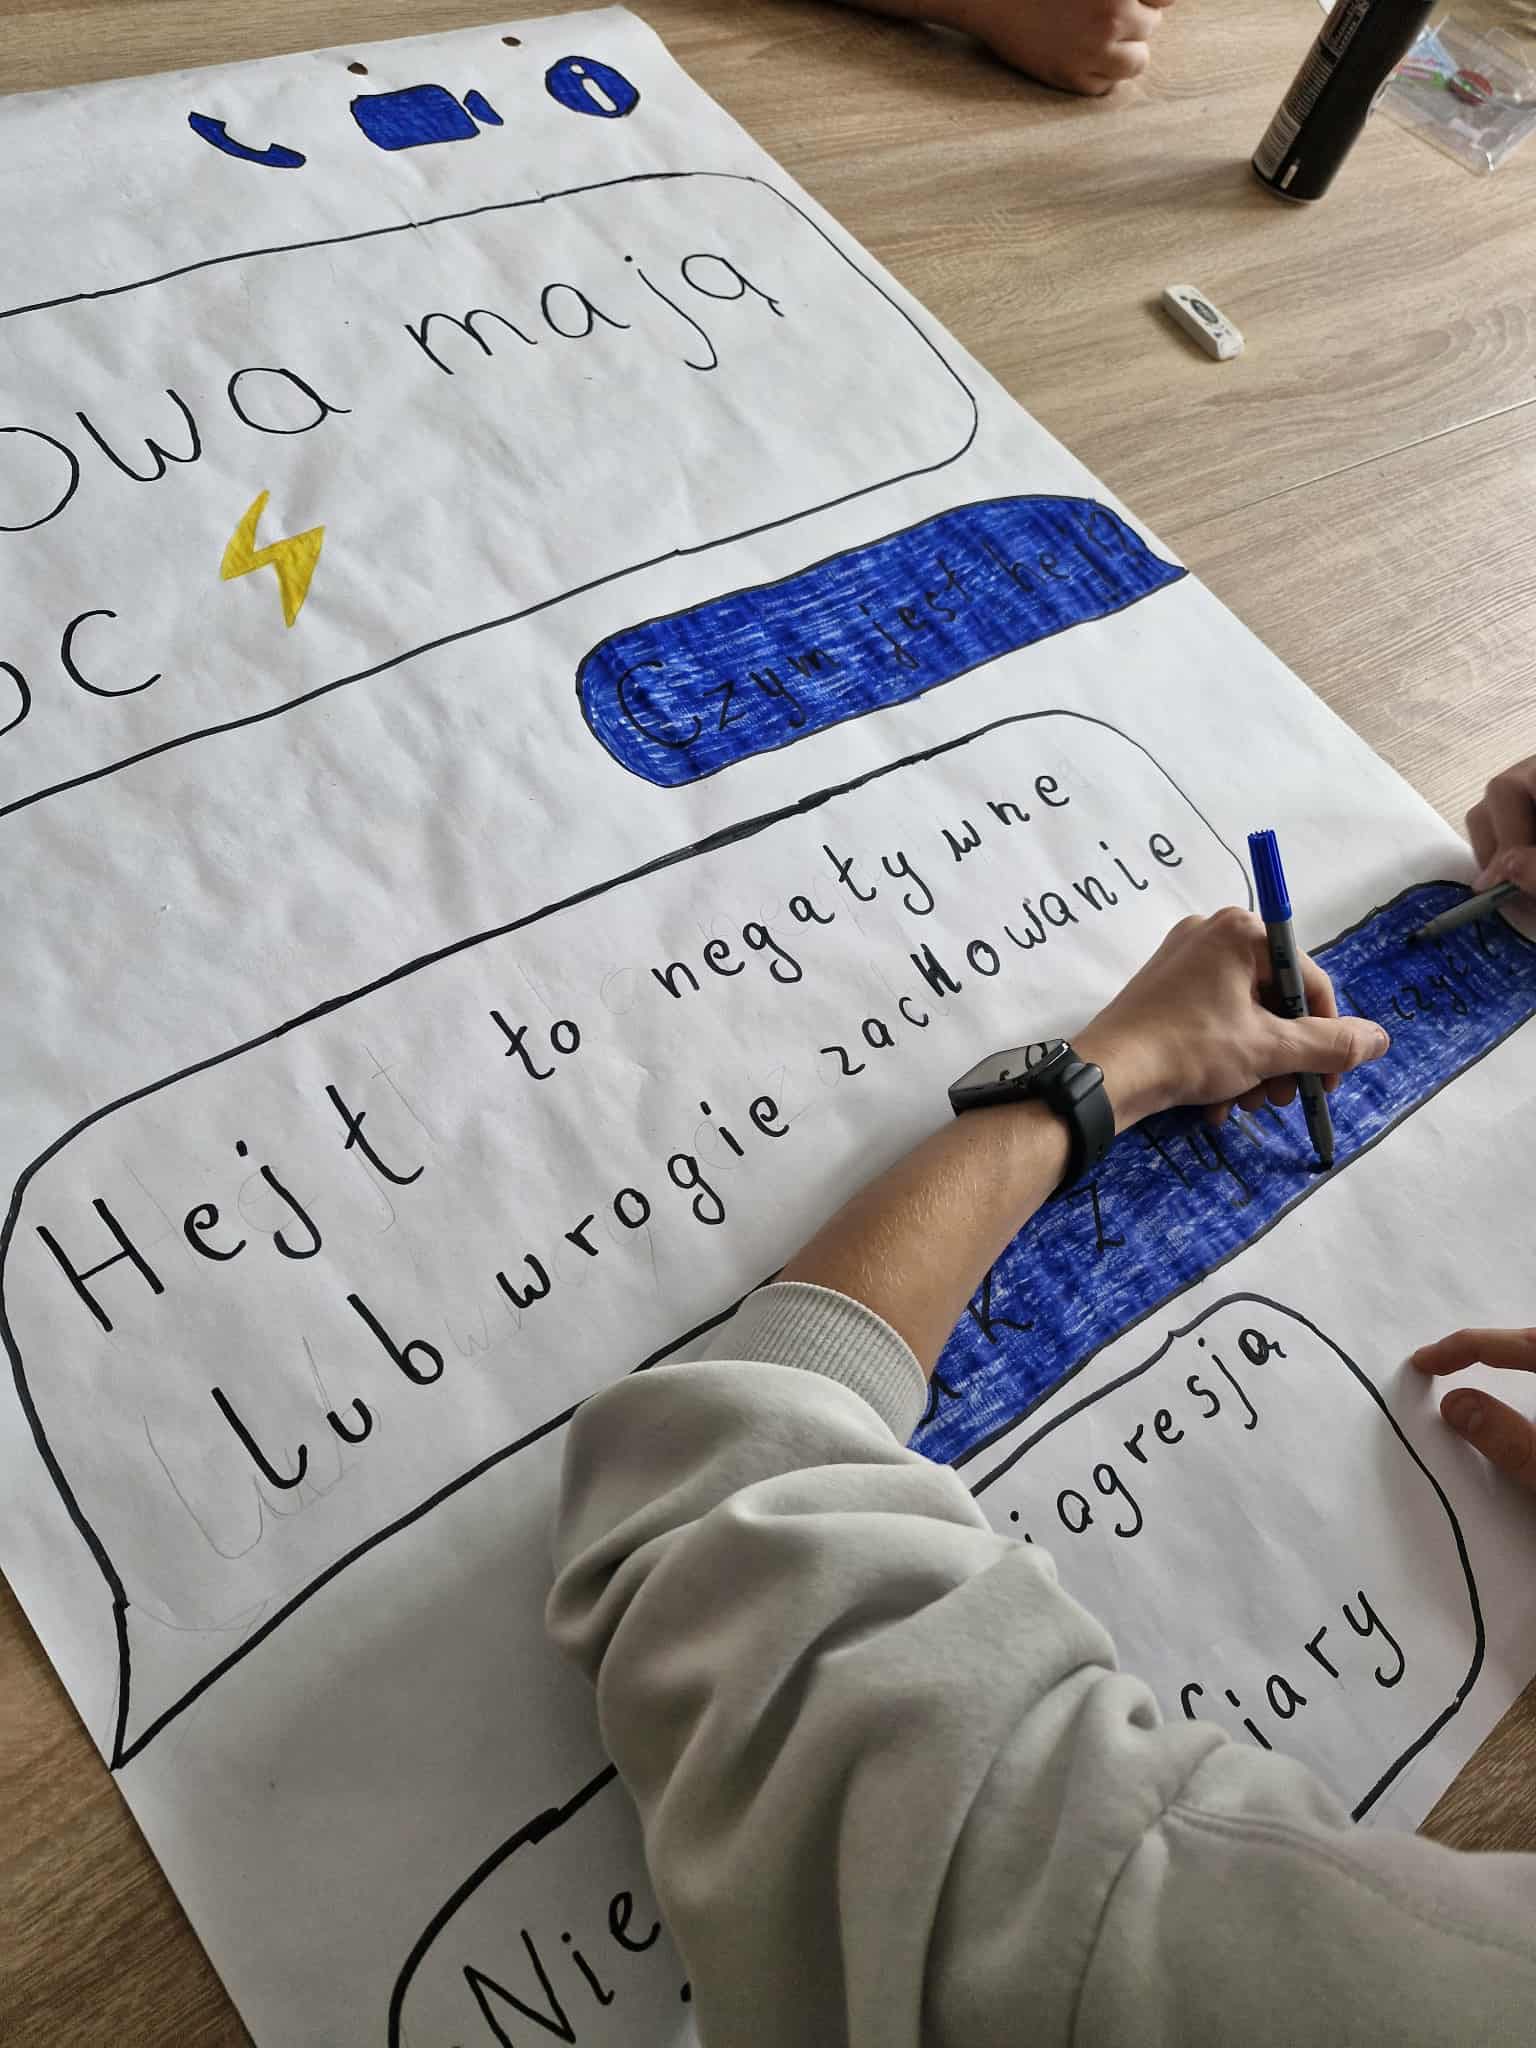 owa mają
oc
Czym jest hejt?
Hejt to negatywne
lub wrogie zachowanie
z tym
i agresją
fiary
Nie